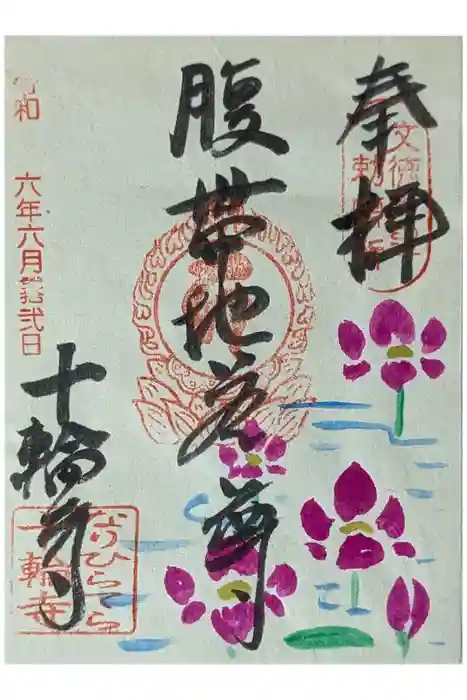 奉拝
文徳
勅
腹帯地蔵尊
令和 六年六月拾弐日
十輪寺
なりひらてら
十輪寺